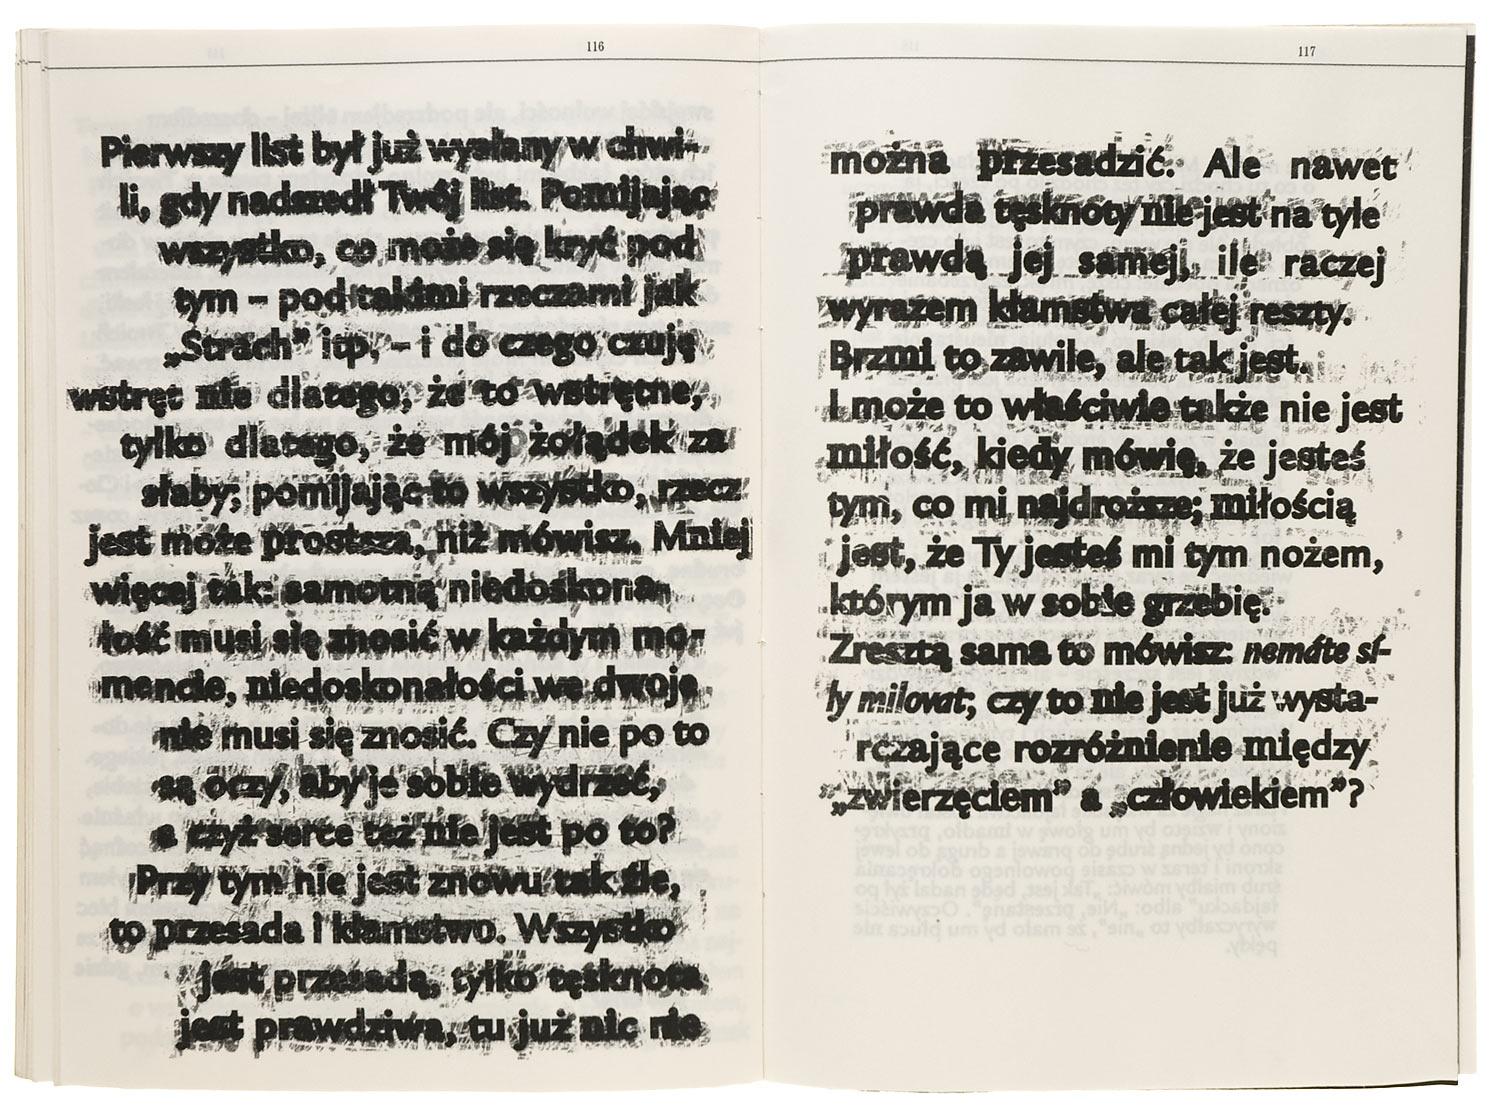 116
Pierwszy list był już wysłany w chwi-
li, gdy nadszedł Twój list. Pomijając
wszystko, co może się kryć pod
tym – pod takimi rzeczami jak
„Strach” itp. – i do czego czuję
wstręt nie dlatego, że to wstrętne,
tylko dlatego, że mój żołądek za
słaby; pomijając to wszystko, rzecz
jest może prostsza, niż mówisz. Mniej
więcej tak: samotną niedoskona-
łość musi się znosić w każdym mo-
mencie, niedoskonałości we dwoje
nie musi się znosić. Czy nie po to
są oczy, aby je sobie wydrzeć,
a czyż serce też nie jest po to?
Przy tym nie jest znowu tak źle,
to przesada i kłamstwo. Wszystko
jest przesadą, tylko tęsknota
jest prawdziwa, tu już nic nie
117
można przesadzić. Ale nawet
prawda tęsknoty nie jest na tyle
prawdą jej samej, ile raczej
wyrazem kłamstwa całej reszty.
Brzmi to zawile, ale tak jest.
I może to właściwie także nie jest
miłość, kiedy mówię, że jesteś
tym, co mi najdroższe; miłością
jest, że Ty jesteś mi tym nożem,
którym ja w sobie grzebię.
Zresztą sama to mówisz: nemáte sí-
ly milovat; czy to nie jest już wysta-
rczające rozróżnienie między
„zwierzęciem” a „człowiekiem”?